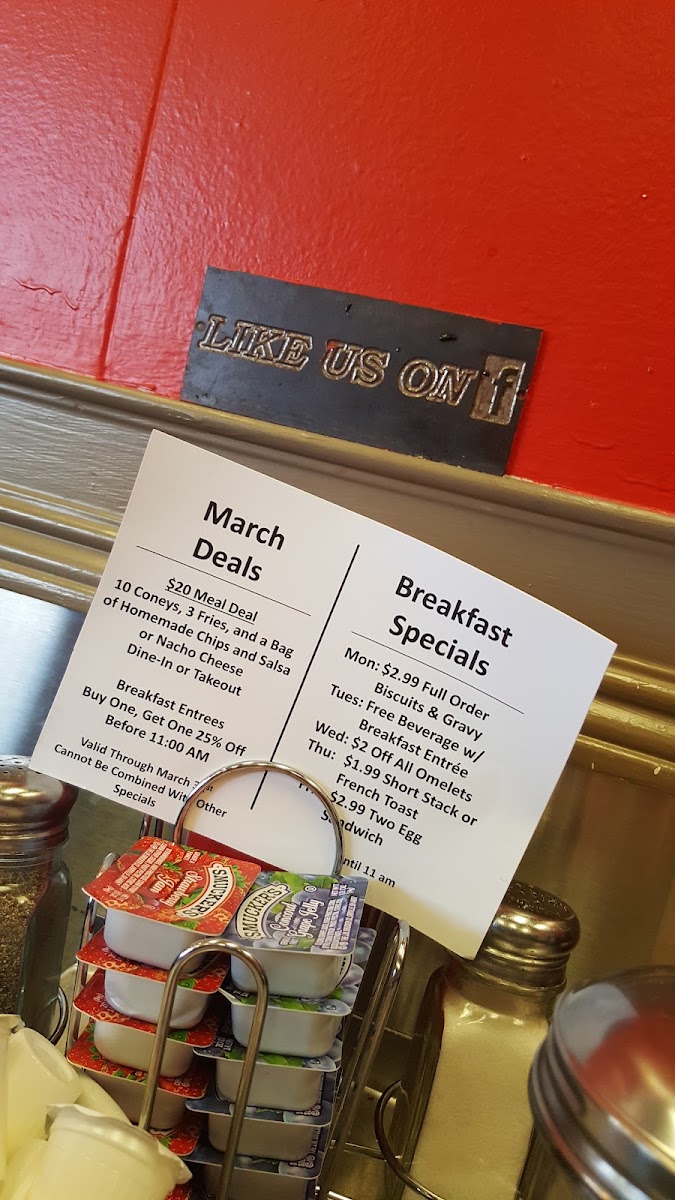 LIKE US ON f
March
Deals
$20 Meal Deal
10 Coneys, 3 Fries, and a Bag
of Homemade Chips and Salsa
or Nacho Cheese
Dine-In or Takeout
Breakfast Entrees
Buy One, Get One 25% Off
Before 11:00 AM
Valid Through March
Cannot Be Combined With Other
Specials
Breakfast
Specials
Mon: $2.99 Full Order
Biscuits & Gravy
Tues: Free Beverage w/
Breakfast Entrée
Wed: $2 Off All Omelets
Thu: $1.99 Short Stack or
French Toast
$2.99 Two Egg
Sandwich
until 11 am
SMUCKER'S
Strawberry
Jam
SMUCKER'S
Concord
Grape Jelly